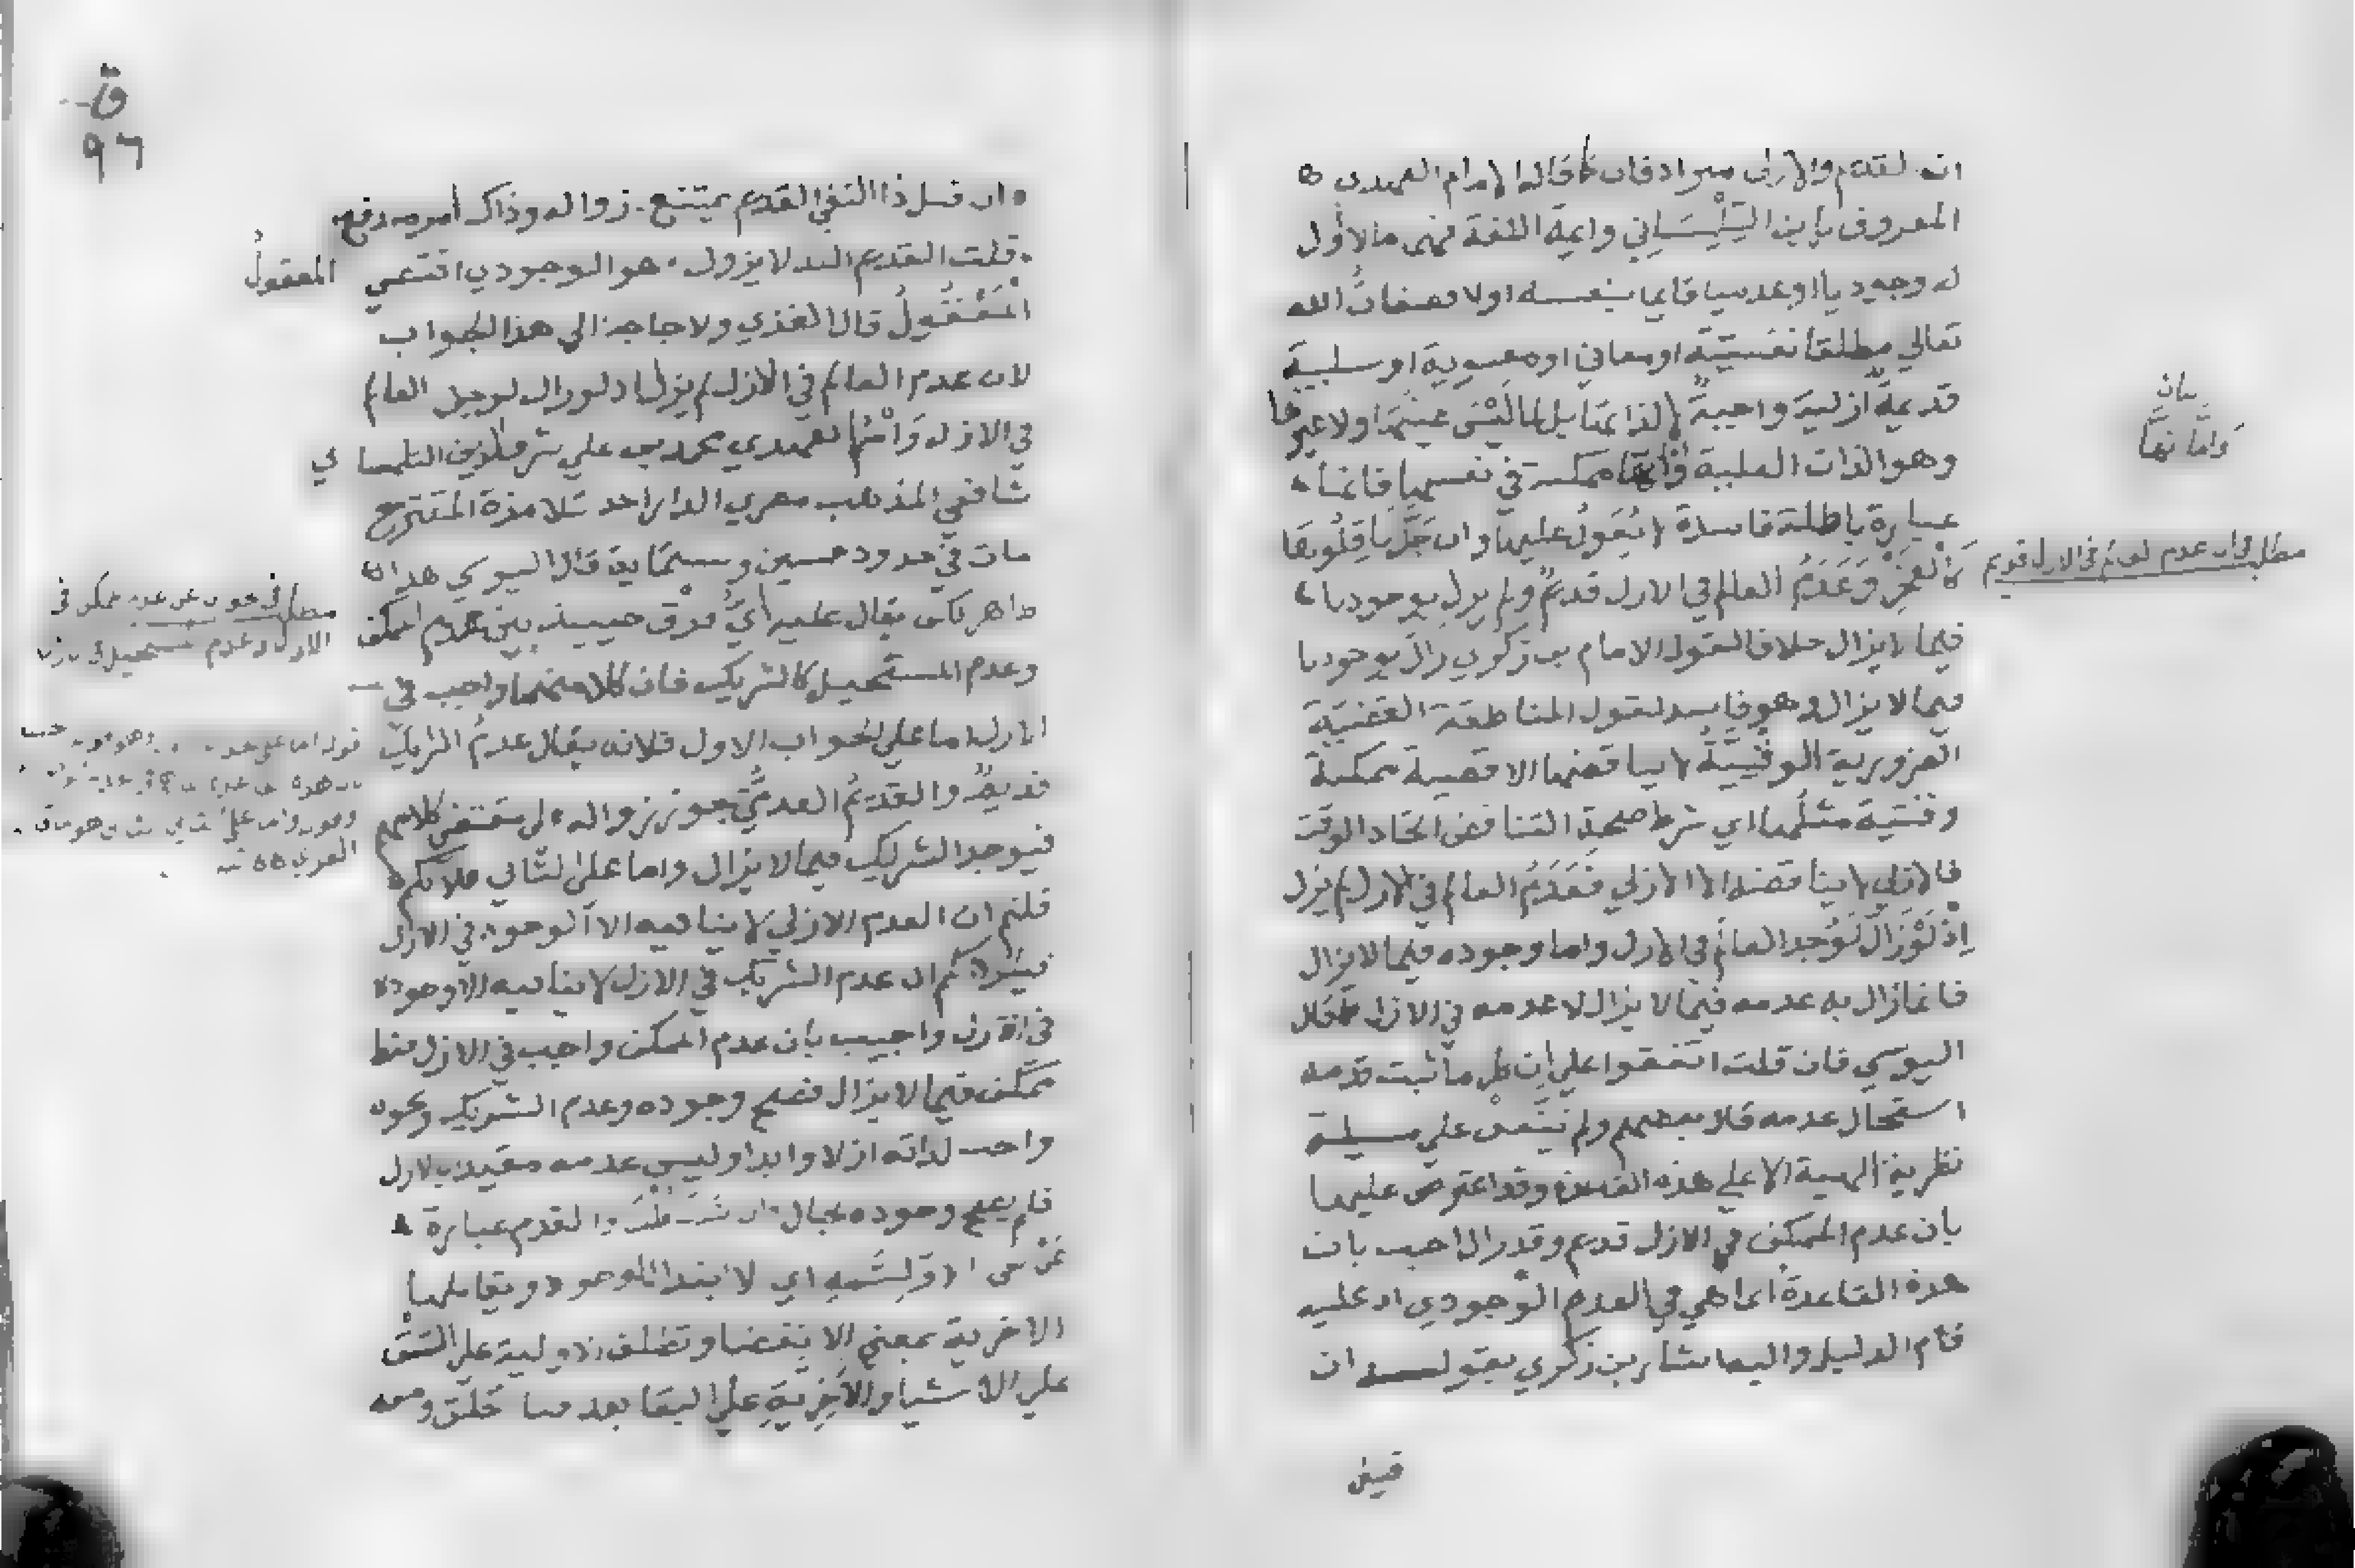 ان القدم والازلي مترادفان كما قاله الامام الفهري
المعروف بابن التلمساني وايمة اللغة فهى ما لا أول
له وجوديا او عدميا قايما بنفسه اولا فصفاتُ الله
تعالي مطلقا نفسيّة او معاني او معنوية او سلبية
قديمةٌ ازلية واجبةٌ لذاتها بل لما ليْسَ عينَها ولا غيرها
وهو الذات العلية ممكنة في نفسها فانها
عبارة باطلة فاسدة لا يُعَولُ عليها وان جَلّ قايلوها
كالفخر وَعَدَمُ العالم في الازل قديمٌ ولم يزل بوجودنا
فيما لا يزال خلافا لقول الامام بن زكري زال بوجودنا
فيما لا يزال وهو فاسد لقول المناطقة القضيّة
الضرورية الوقتيّةُ لا يناقضها الا قضية ممكنة
وقتية مثلُها اي شرط صحة التناقض اتحاد الوقت
فالازلي لا يناقضه الا الازلي فعَدَمُ العالم في الازل لم يزل
اِذ لَوْ زَالَ لَوُجد العالَم في الازل واما وجوده فيما لا يزال
فانما زال به عدمه فيما لا يزال لا عدمه في الازل قال
اليوسي فان قلت اتفقوا علي ان كل ما ثبت قدمه
استحال عدمه قال بعضهم ولم يتفق علي مسيلة
نظرية الهية الا علي هذه القاعدة وقد اعترض عليها
بان عدم الممكن في الازل قديم وقد زال اجيب بان
هذه القاعدة انما هي في القديم الوجودي اذ عليه
قام الدليل واليه اشار بن زكري بقولــه ان
قيل
بيان
وامّا نها
مطلب في ان عدم العالم في الازل قديم
ق
٩٦
ان قيل ذا النفي القديم يمتنع زواله وذاك أمر
قلت القديم الذ لا يزول هو الوجودي اقتضي المعقولُ
الْمَعْقُولُ قال الغذي ولا حاجة الي هذا الجواب
لان عدم العالم في الازل لم يزل اذ لو زال لوجد العالم
في الازل الفهري محمد بن علي شرف الدين التلمساني
شافعي المذهب مصري الدار احد تلامذة المقترح
مات في حدود خمسين وستمايه قال اليوسي هذا
ظاهر لكن يقال عليه أيُّ فرْق حينيذ بين عدم الممكن
وعدم المستحيل كالشريك فان كلا منهما واجب في
الازل اما علي الجواب الاول فلانه يقال عدمُ الشريك
قديمٌ والقديمُ العدميُّ يجوز زواله علي مقتضي كلامهم
فيوجد الشريك فيما لا يزال واما علي الثاني فلانكم
قلتم ان العدم الازلي لا ينافيه الا الوجود في الازل
ان عدم الشريك في الازل لا ينافيه الا وجوده
في الازل واجيب بان عدم الممكن واجب في الازل فقط
ممكن فيما لا يزال فصح وجوده وعدم الشريك ونحوه
واجب لذاته ازلا وابدا وليس عدمه مقيدا بالازل
فلم يصح وجوده بحال والقدم عبارة
اي لا ابتدا للوجود ويقابلها
الاخرية بمعني لا انقضا وتطلق الاولية علي السَّبْق
علي الاشيا والآخِريّةِ علي البقا بعد فنا خلق
مطلب في عدم ممكن في
الازل وعدم مستحيل في الازل
قوله اما علي
واما علي الثاني وهو